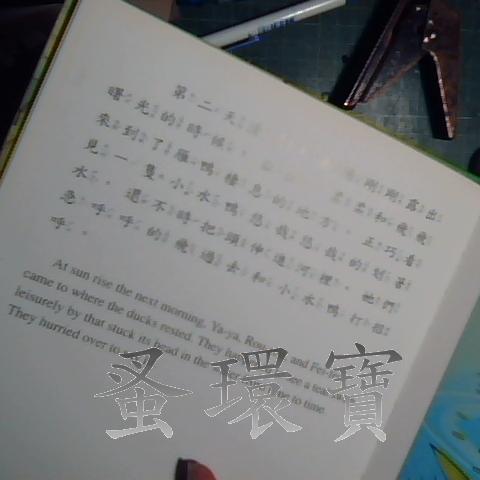 第二天
曙光的時候，剛剛露出
來到了雁鴨棲息的地方。正巧看
見一隻小水鴨悠哉悠哉的划著
水，還不時把頭伸進河裡。她們
急呼呼的飛過去和小水鴨打招
呼。
At sun rise the next morning, Ya-ya, Rou and Fei-
came to where the ducks rested. They see a
leisurely by that stuck its head in the time to time.
They hurried over to
蚤環寶